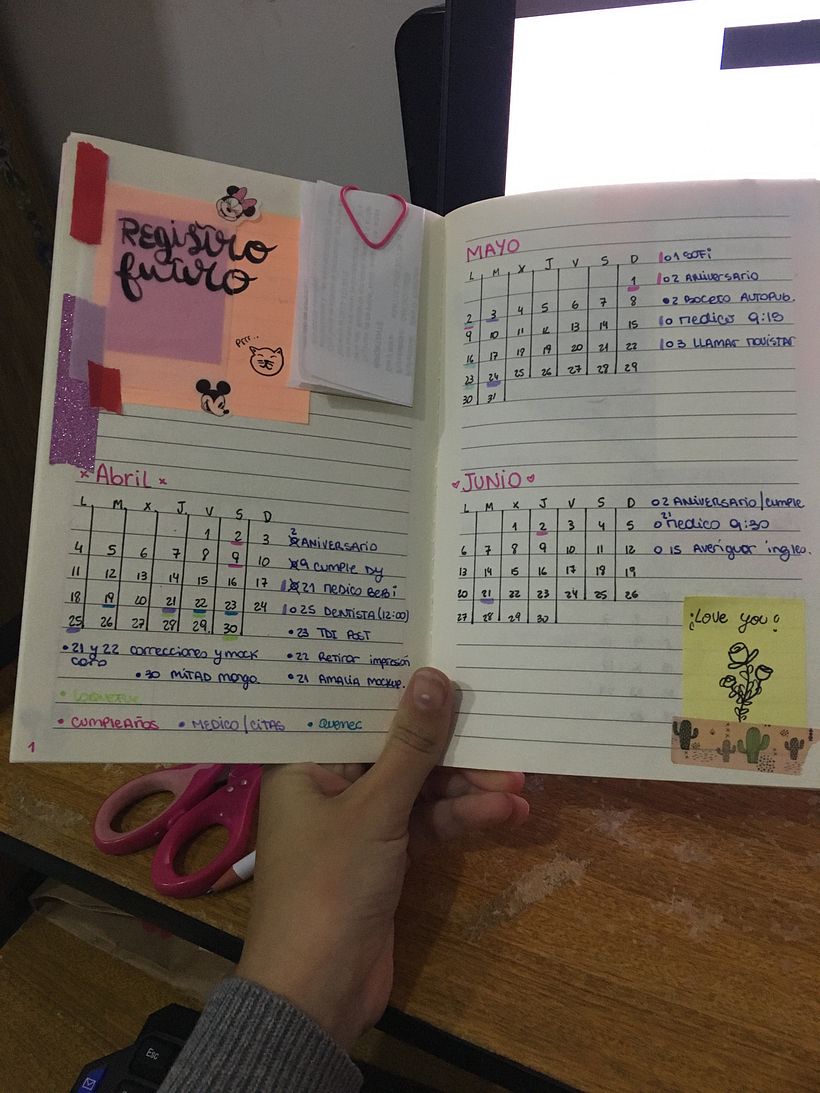 Registro
futuro
Prrr..
× Abril ×
L M X J V S D
1 2 3
4 5 6 7 8 9 10
11 12 13 14 15 16 17
18 19 20 21 22 23 24
25 26 27 28 29 30
2 ANIVERSARIO
9 cumple DY
21 medico BeBi
25 DENTISTA (12:00)
• 23 TDI POST
• 22 Retirar impresión
• 21 AMALIA mockup.
• 21 y 22 correcciones y mock
• 30 MITAD mongo.
• CUMPLEAÑOS • MEDICO/CITAS
1
MAYO
L M X J V S D
1
2 3 4 5 6 7 8
9 10 11 12 13 14 15
16 17 18 19 20 21 22
23 24 25 26 27 28 29
30 31
01 SOFI
02 ANIVERSARIO
• 2 BOCETO AUTOPUB.
medico 9:15
03 LLAMAR MOVISTAR
♥ JUNIO ♥
L M X J V S D
1 2 3 4 5
6 7 8 9 10 11 12
13 14 15 16 17 18 19
20 21 22 23 24 25 26
27 28 29 30
o 2 ANIVERSARIO/cumple
o 21 medico 9:30
o 15 Averiguar ingles.
¡Love you!
Esc